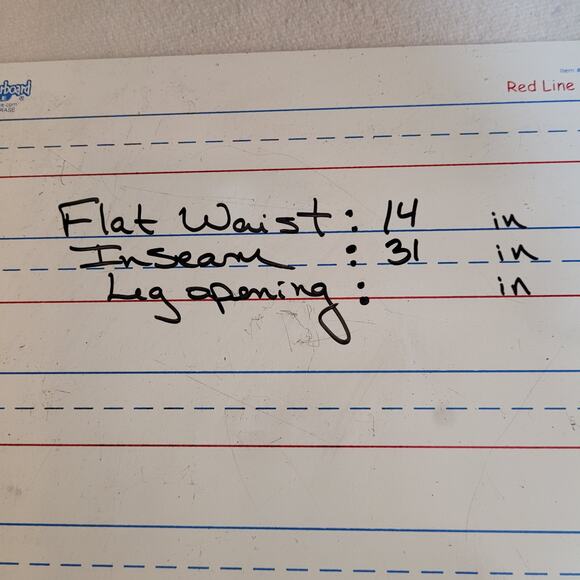 Red Line
Flat Waist : 14 in
Inseam : 31 in
Leg opening : in